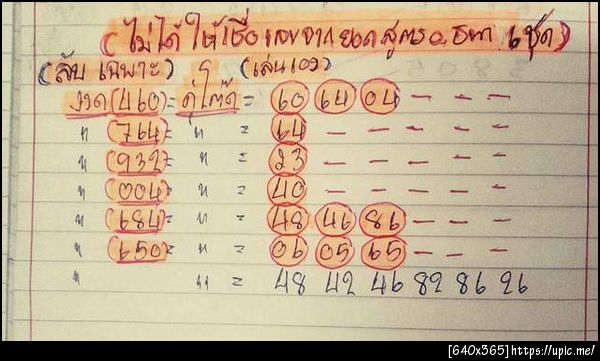 (ไม่ได้ ให้เชื่อ เลขจาก ยอดสูตร 6 ชุด)
(ลับ เฉพาะ) (เล่นเอง)
งวด (460) = คู่โต๊ด = 60 64 04 - - -
" (764) = " = 64 - - - - -
" (932) = " = 23 - - - - -
" (004) = " = 40 - - - - -
" (684) = " = 48 46 86 - - -
" (650) = " = 06 05 65 - - -
" " = 48 42 46 82 86 26
[640x365]https://upic.me/